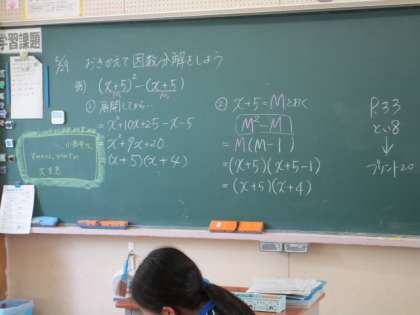 学習課題
5/29 おきかえて因数分解をしよう
例) (x+5)² − (x+5)
M M
① 展開してから…
= x²+10x+25−x−5
= x²+9x+20
= (x+5)(x+4)
② x+5=Mとおく
M²−M
= M(M−1)
= (x+5)(x+5−1)
= (x+5)(x+4)
P.33
とい8
↓
プリント20